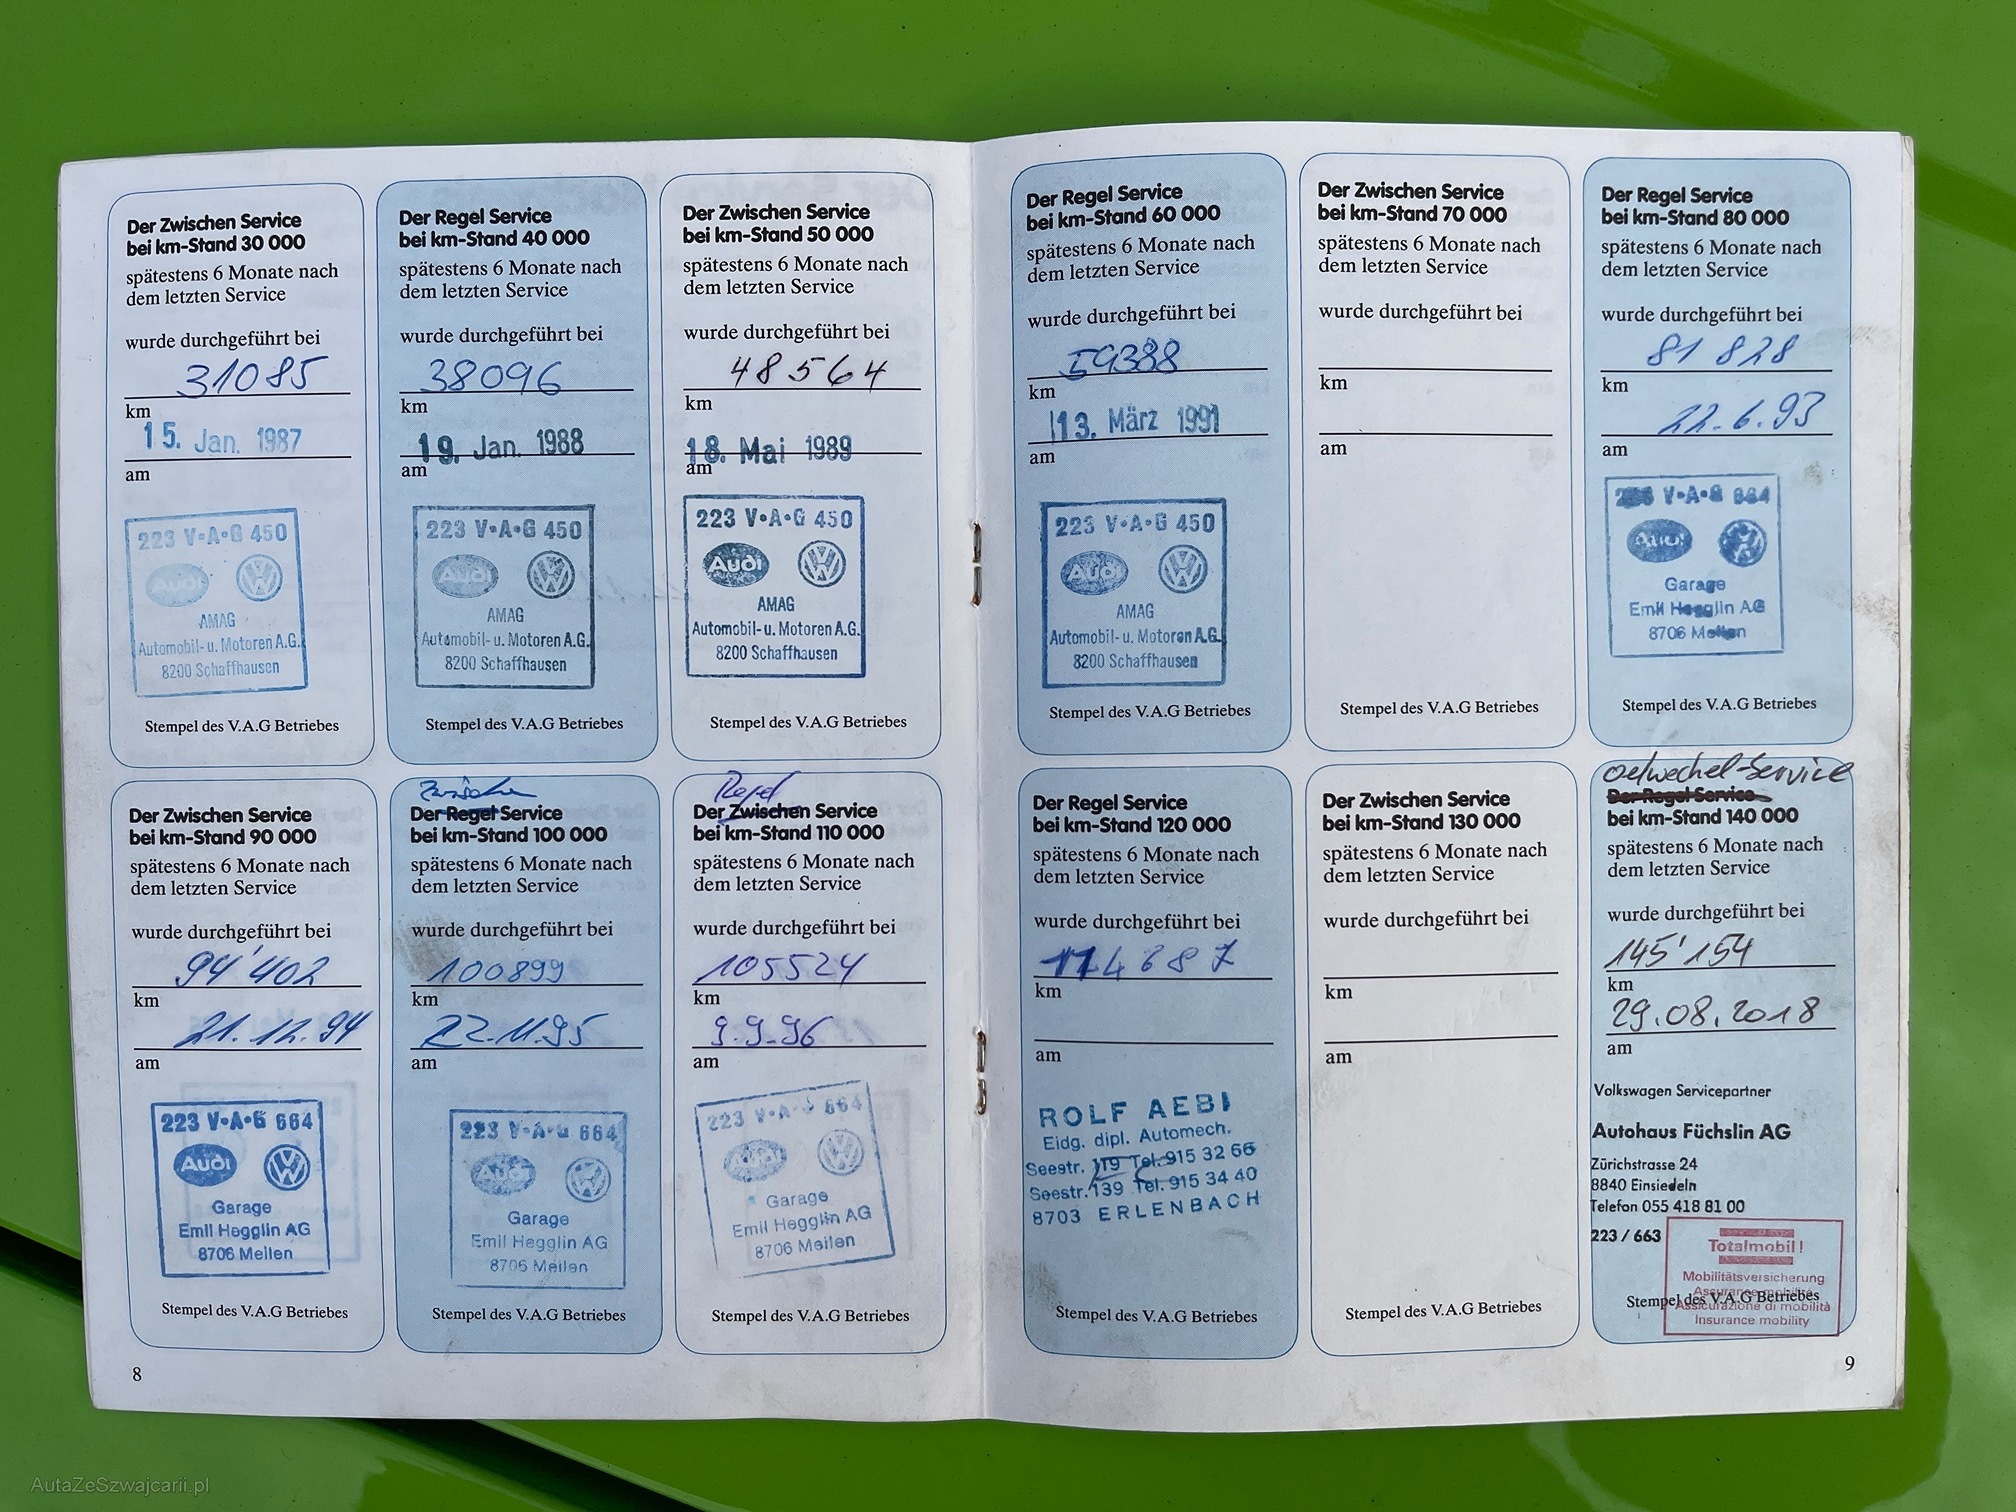 Der Zwischen Service
bei km-Stand 30 000
spätestens 6 Monate nach
dem letzten Service
wurde durchgeführt bei
31085
km
15. Jan. 1987
am
223 V•A•G 450
Audi
AMAG
Automobil- u. Motoren A.G.
8200 Schaffhausen
Stempel des V.A.G Betriebes
Der Regel Service
bei km-Stand 40 000
spätestens 6 Monate nach
dem letzten Service
wurde durchgeführt bei
38096
km
19. Jan. 1988
am
223 V•A•G 450
Audi
AMAG
Automobil- u. Motoren A.G.
8200 Schaffhausen
Stempel des V.A.G Betriebes
Der Zwischen Service
bei km-Stand 50 000
spätestens 6 Monate nach
dem letzten Service
wurde durchgeführt bei
48564
km
18. Mai 1989
am
223 V•A•G 450
Audi
AMAG
Automobil- u. Motoren A.G.
8200 Schaffhausen
Stempel des V.A.G Betriebes
Der Zwischen Service
bei km-Stand 90 000
spätestens 6 Monate nach
dem letzten Service
wurde durchgeführt bei
94'402
km
21.12.94
am
223 V•A•G 664
Audi
Garage
Emil Hegglin AG
8706 Meilen
Stempel des V.A.G Betriebes
Zwischen
Der Regel Service
bei km-Stand 100 000
spätestens 6 Monate nach
dem letzten Service
wurde durchgeführt bei
100899
km
22.11.95
am
223 V•A•G 664
Audi
Garage
Emil Hegglin AG
8706 Meilen
Stempel des V.A.G Betriebes
Regel
Der Zwischen Service
bei km-Stand 110 000
spätestens 6 Monate nach
dem letzten Service
wurde durchgeführt bei
105524
km
9.9.96
am
223 V•A•G 664
Audi
Garage
Emil Hegglin AG
8706 Meilen
Stempel des V.A.G Betriebes
8
Der Regel Service
bei km-Stand 60 000
spätestens 6 Monate nach
dem letzten Service
wurde durchgeführt bei
59388
km
13. März 1991
am
223 V•A•G 450
Audi
AMAG
Automobil- u. Motoren A.G.
8200 Schaffhausen
Stempel des V.A.G Betriebes
Der Zwischen Service
bei km-Stand 70 000
spätestens 6 Monate nach
dem letzten Service
wurde durchgeführt bei
km
am
Stempel des V.A.G Betriebes
Der Regel Service
bei km-Stand 80 000
spätestens 6 Monate nach
dem letzten Service
wurde durchgeführt bei
81 828
km
22.6.93
am
223 V•A•G 664
Audi
Garage
Emil Hegglin AG
8706 Meilen
Stempel des V.A.G Betriebes
Der Regel Service
bei km-Stand 120 000
spätestens 6 Monate nach
dem letzten Service
wurde durchgeführt bei
114687
km
am
ROLF AEBI
Eidg. dipl. Automech.
Seestr. 119 Tel. 915 32 66
Seestr. 139 Tel. 915 34 40
8703 ERLENBACH
Stempel des V.A.G Betriebes
Der Zwischen Service
bei km-Stand 130 000
spätestens 6 Monate nach
dem letzten Service
wurde durchgeführt bei
km
am
Stempel des V.A.G Betriebes
Oelwechel-Service
Der Regel Service
bei km-Stand 140 000
spätestens 6 Monate nach
dem letzten Service
wurde durchgeführt bei
145'154
km
29.08.2018
am
Volkswagen Servicepartner
Autohaus Füchslin AG
Zürichstrasse 24
8840 Einsiedeln
Telefon 055 418 81 00
223 / 663
Totalmobil!
Mobilitätsversicherung
Assurance mobilité
Stempel des V.A.G Betriebes
Assicurazione di mobilità
Insurance mobility
9
AutaZeSzwajcarii.pl